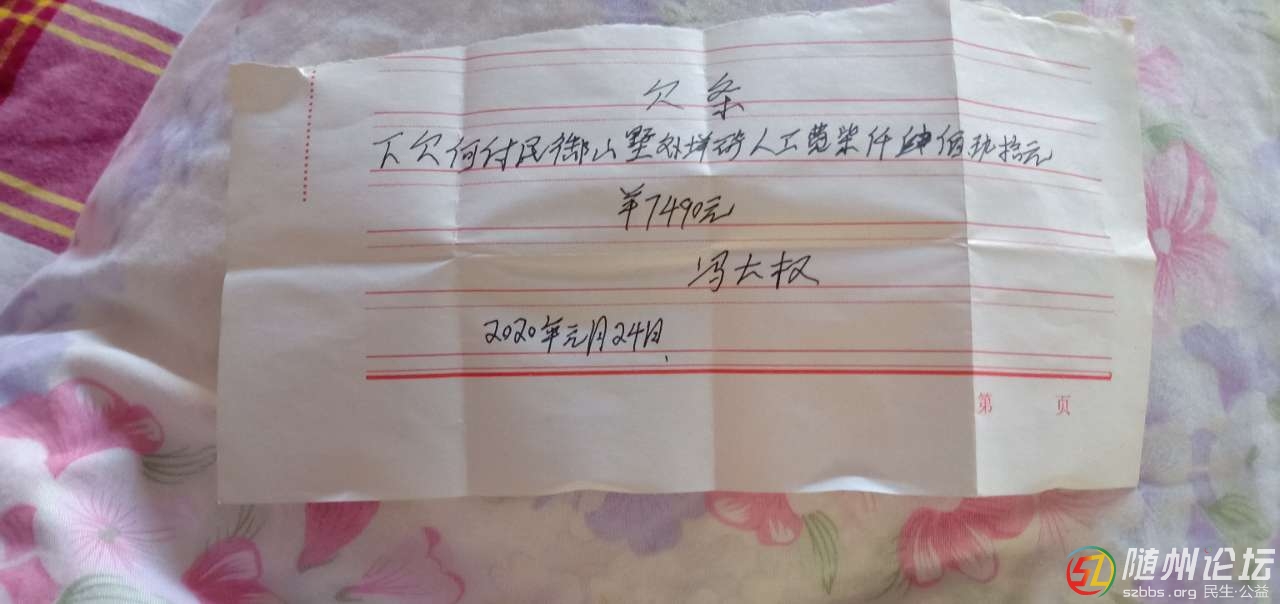 欠条
下欠何付民御山墅外墙砖人工费柒仟肆佰玖拾元
￥7490元
冯大权
2020年元月24日
第 页
随州论坛
szbbs.org 民生·公益